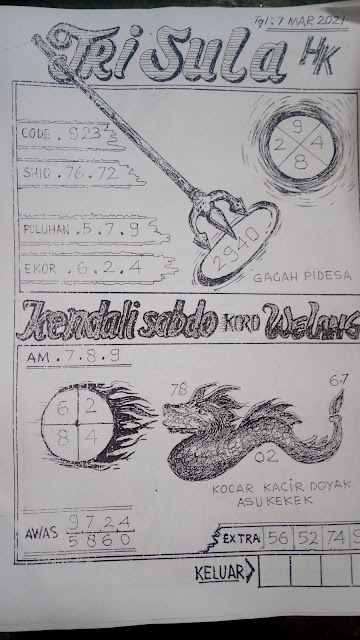 Tgl: 7 MAR 2021
Tri Sula HK
CODE . 923
SHIO . 76.72
PULUHAN . 5.7.9
EKOR . 6.2.4
9
2 4
8
2940
GAGAH PIDESA
Kendali sabdo KERO
AM . 7.8.9
6 2
8 4
78
6.7
02
KOCAR KACIR DOYAK
ASU KEKEK
AWAS 9724
5860
EXTRA 56 52 74 9
KELUAR